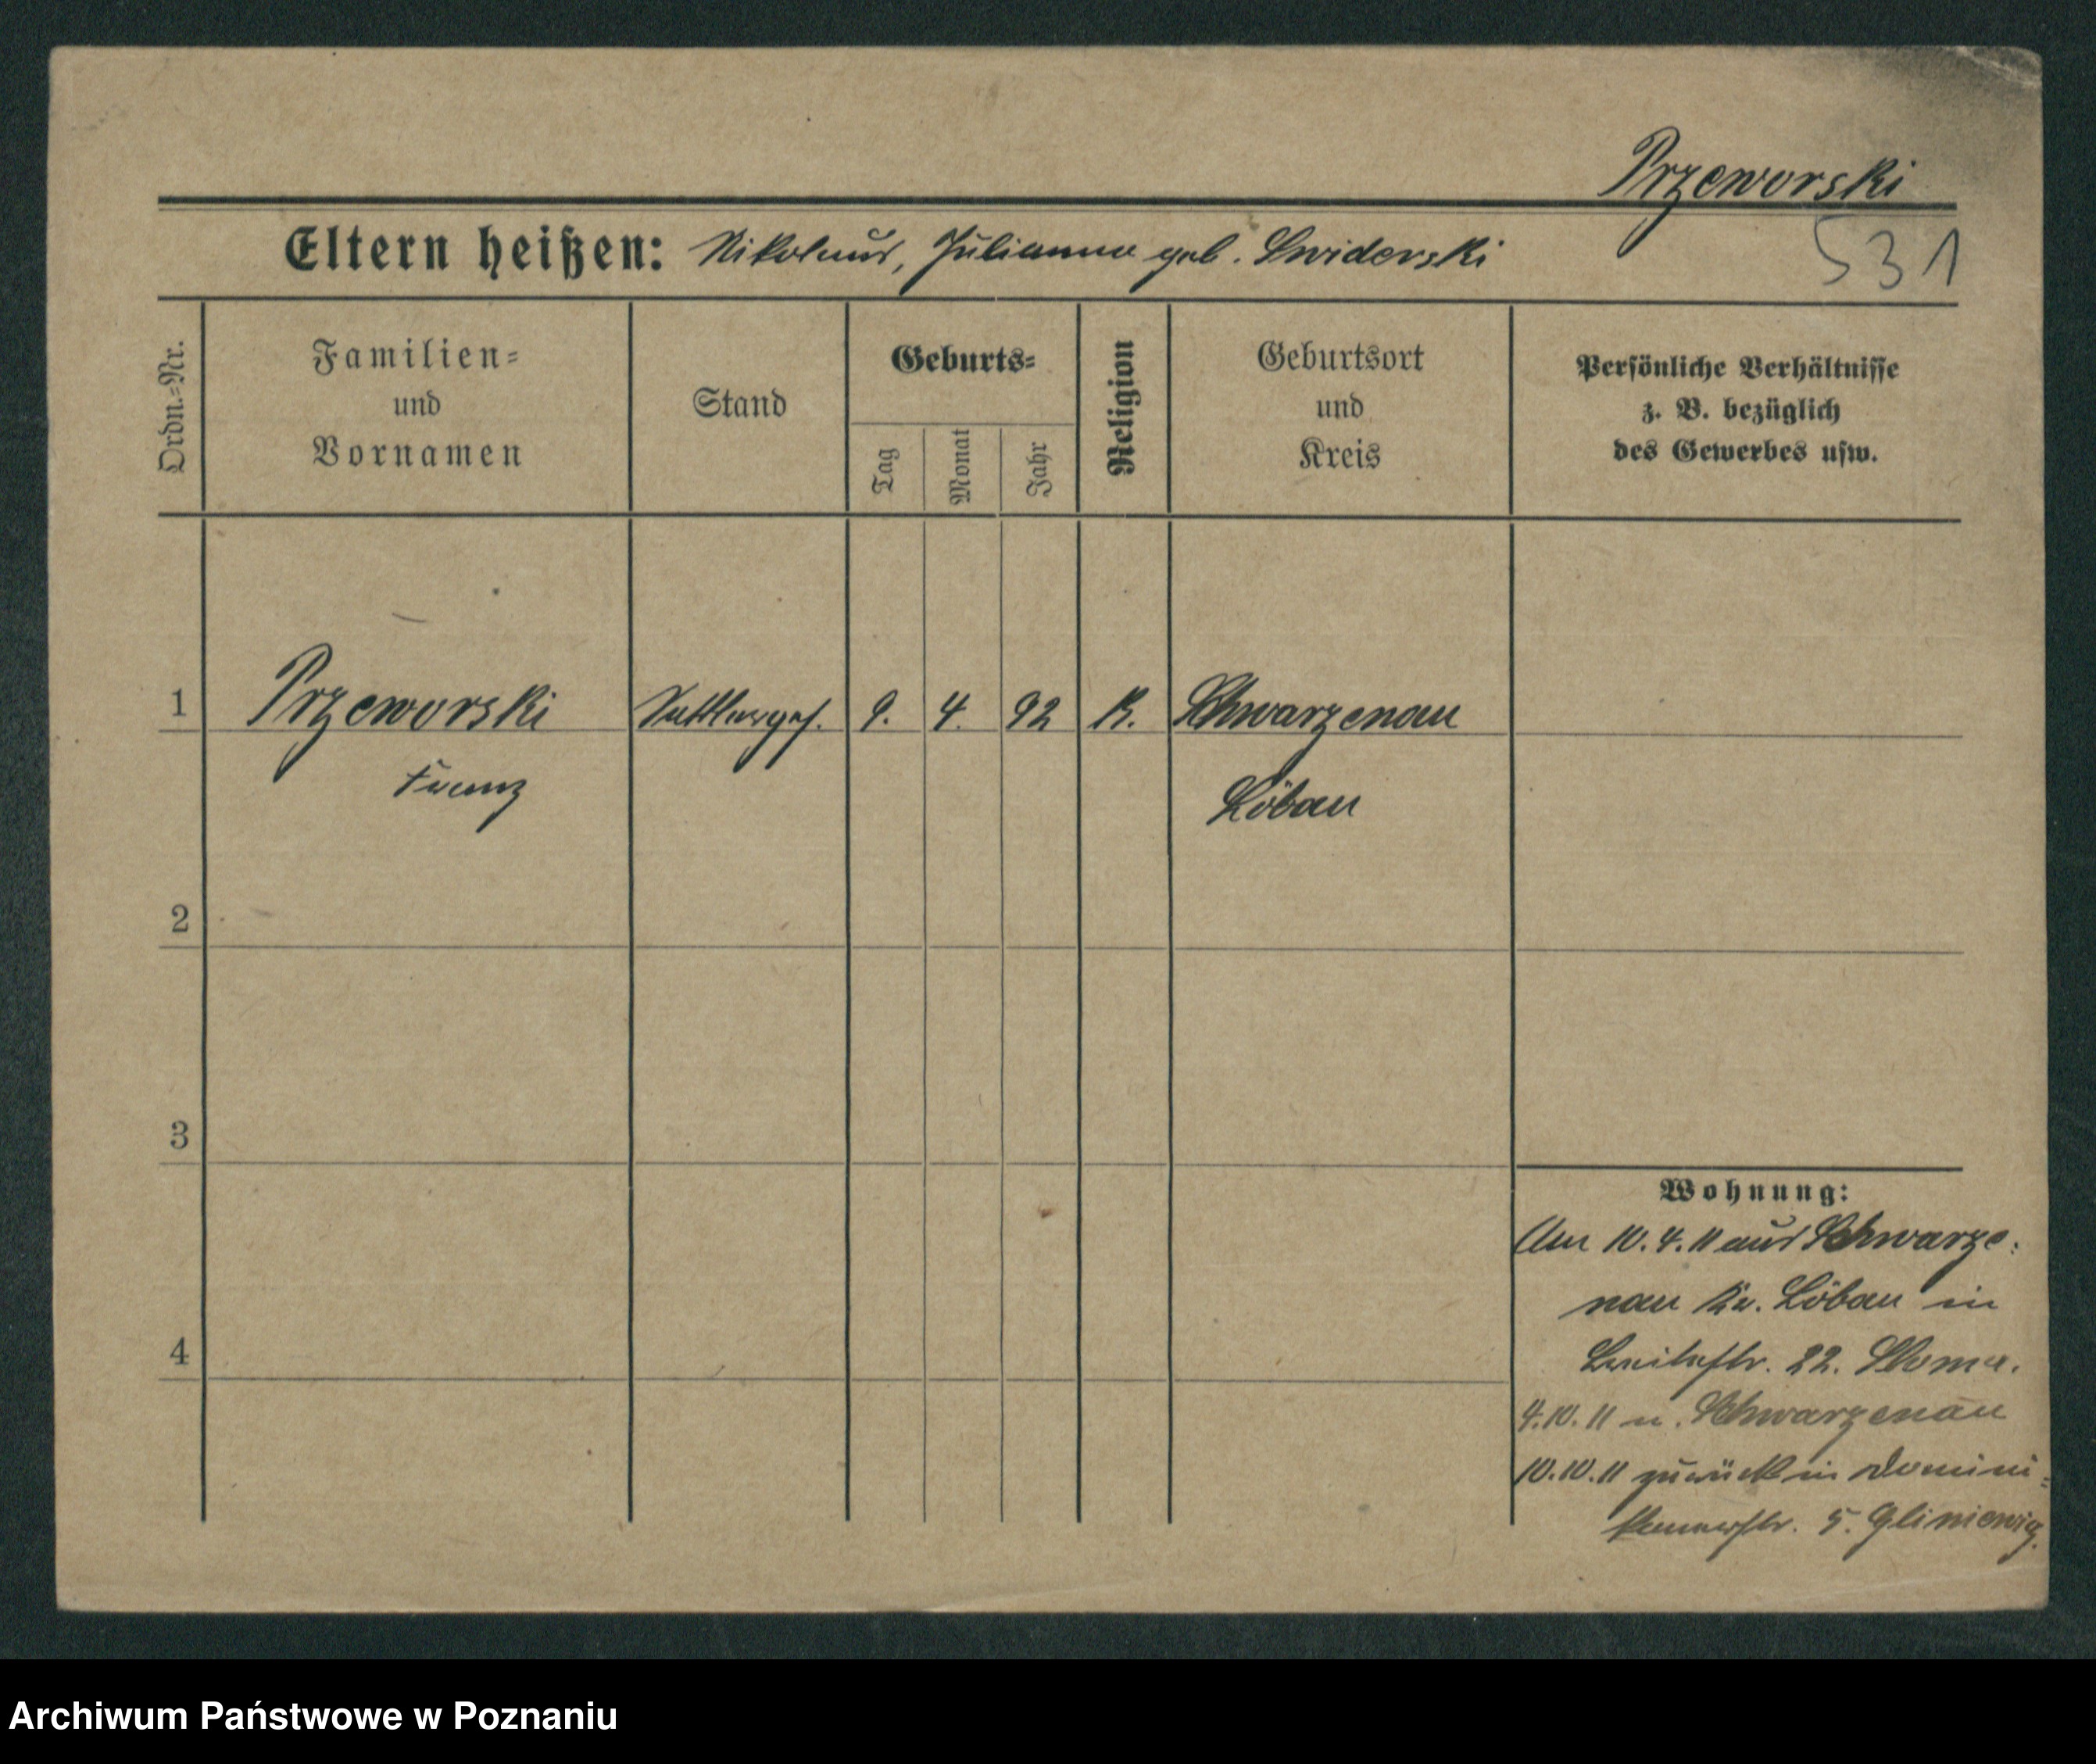 Przeworski
531
Eltern heißen: Nikolaus, Julianna geb. Swiderski
Ordn.=Nr.
Familien=
und
Vornamen
Stand
Geburts=
Tag
Monat
Jahr
Religion
Geburtsort
und
Kreis
Persönliche Verhältnisse
z. B. bezüglich
des Gewerbes usw.
1 Przeworski Sattlerges. 9. 4. 92 K. Schwarzenau
Franz Löbau
2
3
4
Wohnung:
Am 10.4.11 aus Schwarze:
nau Kr. Löbau in
Breitestr. 22. Sloma.
4.10.11 n. Schwarzenau
10.10.11 zurück in Domini=
kanerstr. 5. Gliniewicz.
Archiwum Państwowe w Poznaniu